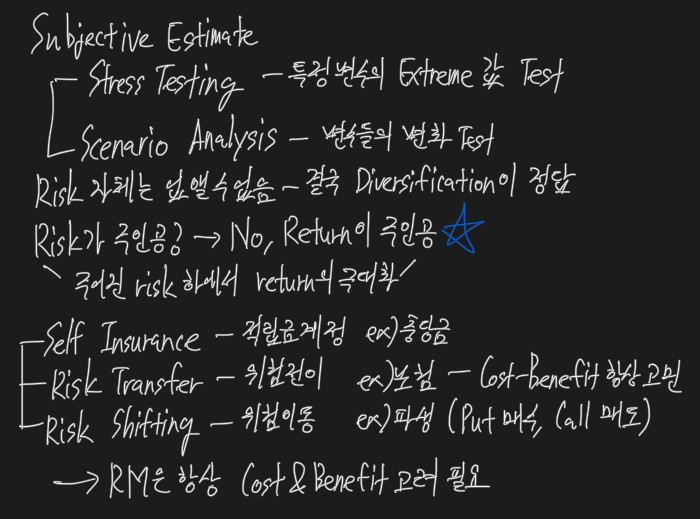 Subjective Estimate
Stress Testing - 특정변수의 Extreme 값 Test
Scenario Analysis - 변수들의 변화 Test
Risk 자체는 없앨수없음 - 결국 Diversification이 정답
Risk가 주인공? → No, Return이 주인공 ☆
" 주어진 risk 하에서 return의 극대화 "
Self Insurance - 적립금계정 ex)충당금
Risk Transfer - 위험전이 ex)보험 - Cost-Benefit 항상 고민
Risk Shifting - 위험이동 ex)파생 (Put 매수, Call 매도)
→ RM은 항상 Cost & Benefit 고려 필요